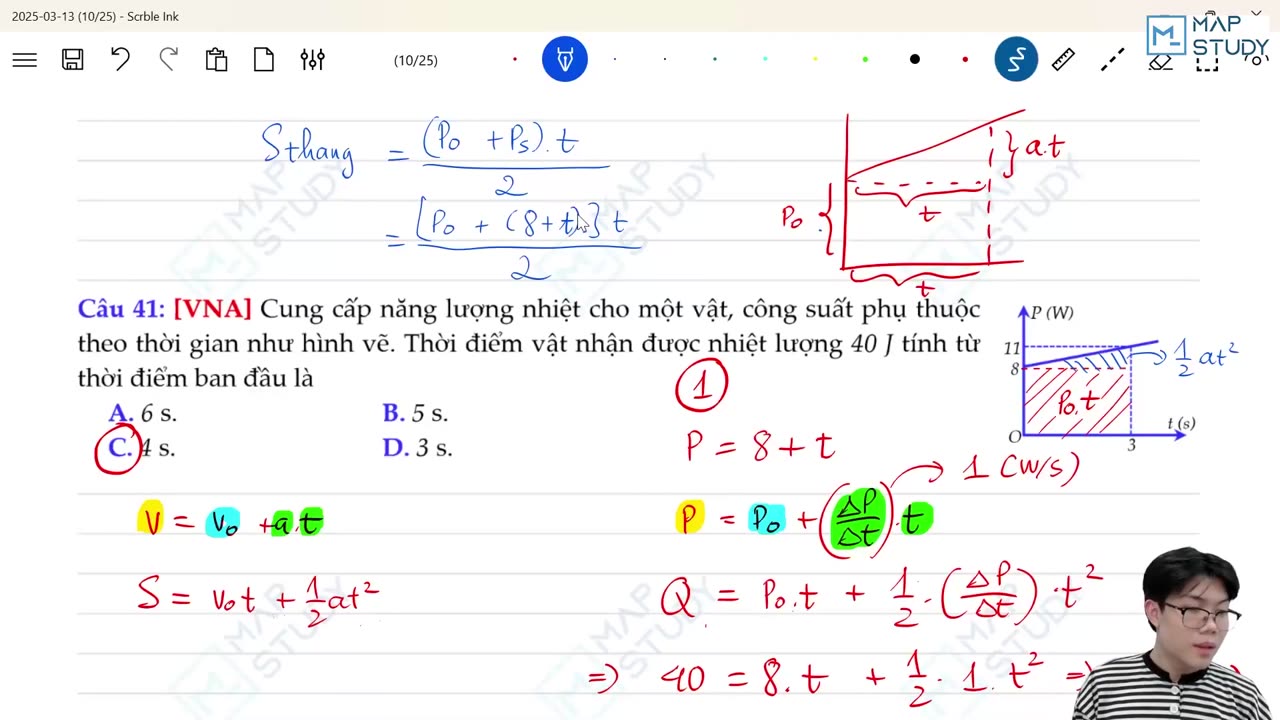 2025-03-13 (10/25) - Scrble Ink
MAP STUDY
(10/25)
Sthang = (P₀ + Ps).t / 2
= [P₀ + (8+t)] t / 2
P₀
t
a.t
t
Câu 41: [VNA] Cung cấp năng lượng nhiệt cho một vật, công suất phụ thuộc
theo thời gian như hình vẽ. Thời điểm vật nhận được nhiệt lượng 40 J tính từ
thời điểm ban đầu là
A. 6 s. B. 5 s.
C. 4 s. D. 3 s.
P (W)
11
8
O
3
t (s)
P₀.t
1/2 at²
1
P = 8 + t
1 (W/s)
V = V₀ + a.t
P = P₀ + (ΔP/Δt).t
S = V₀t + 1/2 at²
Q = P₀.t + 1/2 . (ΔP/Δt) . t²
=> 40 = 8.t + 1/2 . 1. t² =>